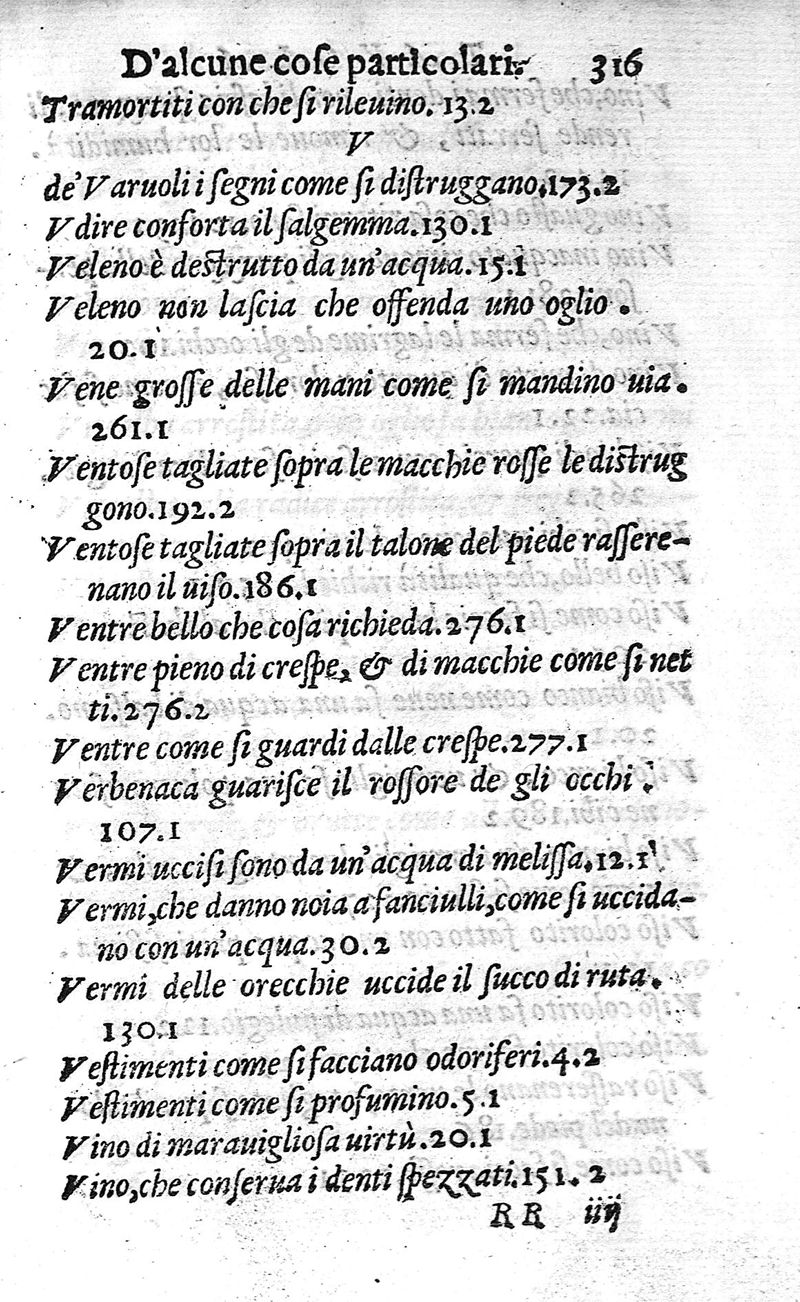 D'alcune cose particolari. 316
Tramortiti con che si rileuino. 13.2
V
de' Varuoli i segni come si distruggano.173.2
Vdire conforta il salgemma.130.1
Veleno è destrutto da un'acqua.15.1
Veleno non lascia che offenda uno oglio .
20.1
Vene grosse delle mani come si mandino uia.
261.1
Ventose tagliate sopra le macchie rosse le distrug
gono.192.2
Ventose tagliate sopra il talone del piede rassere-
nano il uiso.186.1
Ventre bello che cosa richieda.276.1
Ventre pieno di crespe, & di macchie come si net
ti.276.2
Ventre come si guardi dalle crespe.277.1
Verbenaca guarisce il rossore de gli occhi .
107.1
Vermi uccisi sono da un'acqua di melissa.12.1
Vermi,che danno noia a fanciulli,come si uccida-
no con un'acqua.30.2
Vermi delle orecchie uccide il succo di ruta.
130.1
Vestimenti come si facciano odoriferi.4.2
Vestimenti come si profumino.5.1
Vino di marauigliosa uirtù.20.1
Vino,che conserua i denti spezzati.151.2
RR iiij